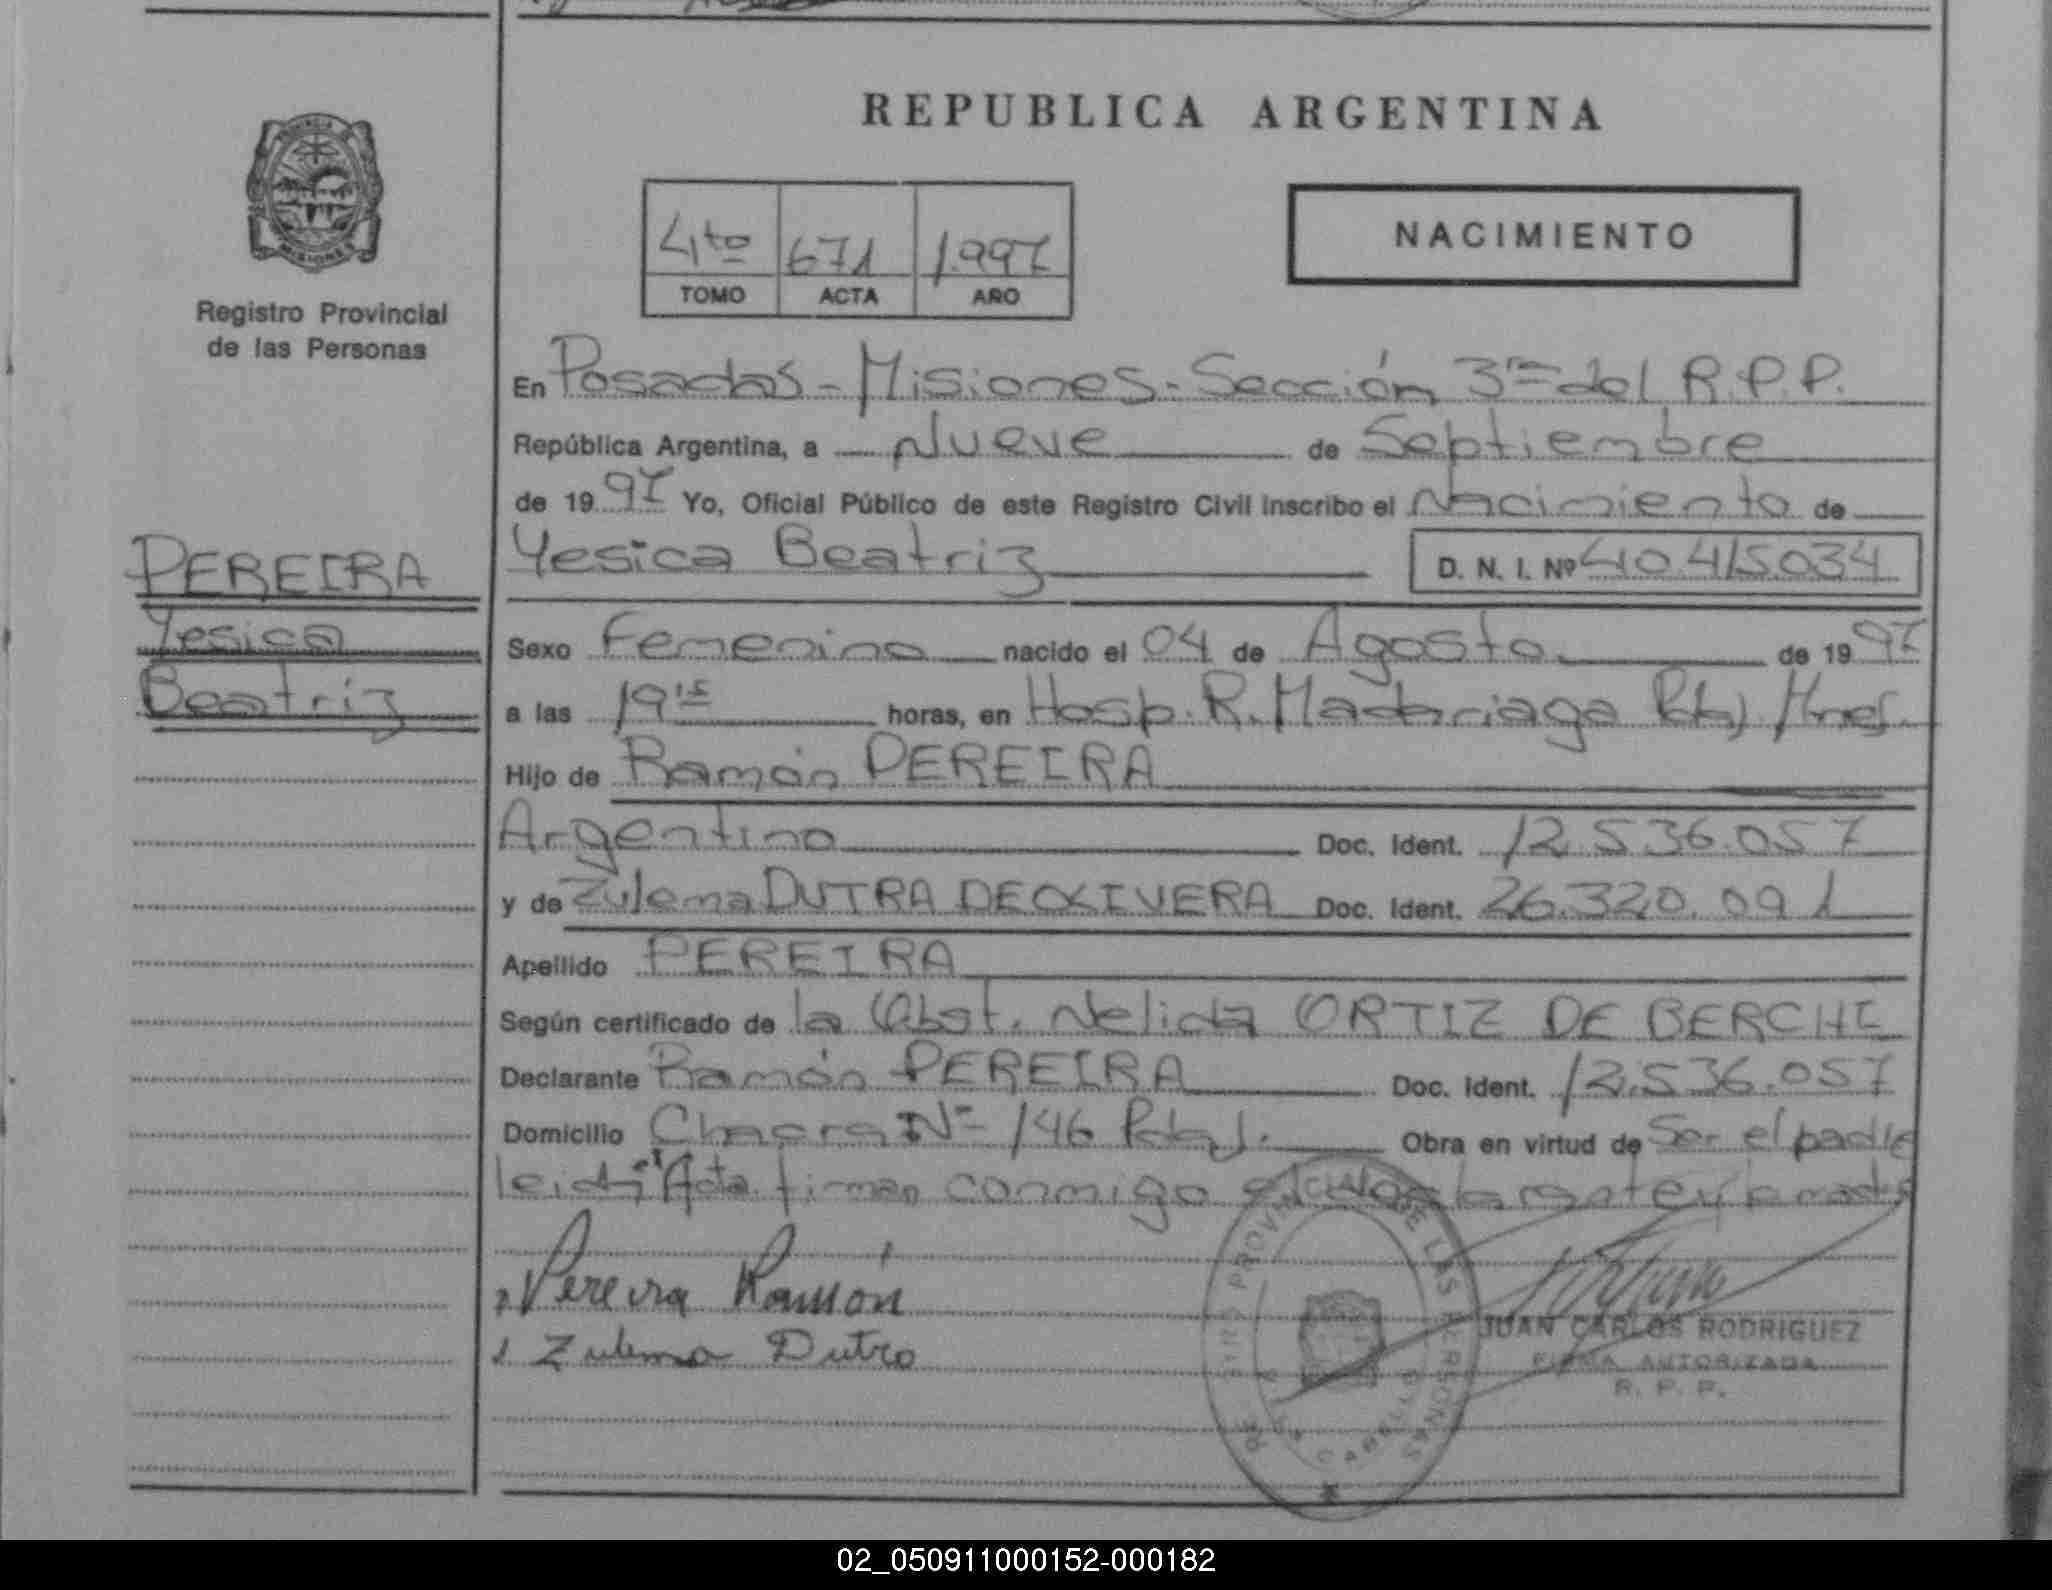 REPUBLICA ARGENTINA
PROVINCIA DE
MISIONES
Registro Provincial
de las Personas
4to 671 1.997
TOMO ACTA AÑO
NACIMIENTO
En Posadas - Misiones - Sección 3ra del R.P.P.
República Argentina, a Nueve de Septiembre
de 1997 Yo, Oficial Público de este Registro Civil inscribo el Nacimiento de
Yesica Beatriz D. N. I. Nº 40.415.034
PEREIRA
Yesica
Beatriz
Sexo Femenino nacido el 04 de Agosto de 1997
a las 19 15 horas, en Hosp. R. Madariaga Pdas. Mnes.
Hijo de Ramón PEREIRA
Argentino Doc. Ident. 12.536.057
y de Zulema DUTRA DE OLIVERA Doc. Ident. 26.320.091
Apellido PEREIRA
Según certificado de la Obst. Nelida ORTIZ DE BERCHI
Declarante Ramón PEREIRA Doc. Ident. 12.536.057
Domicilio Chacra Nº 146 Pdas. Obra en virtud de Ser el padre
leida el Acta firman conmigo el declarante y la madre
Pereira Ramón
Zulema Dutra
PROVINCIAL DE LAS PERSONAS
JUAN CARLOS RODRIGUEZ
FIRMA AUTORIZADA
R. P. P.
02_050911000152-000182